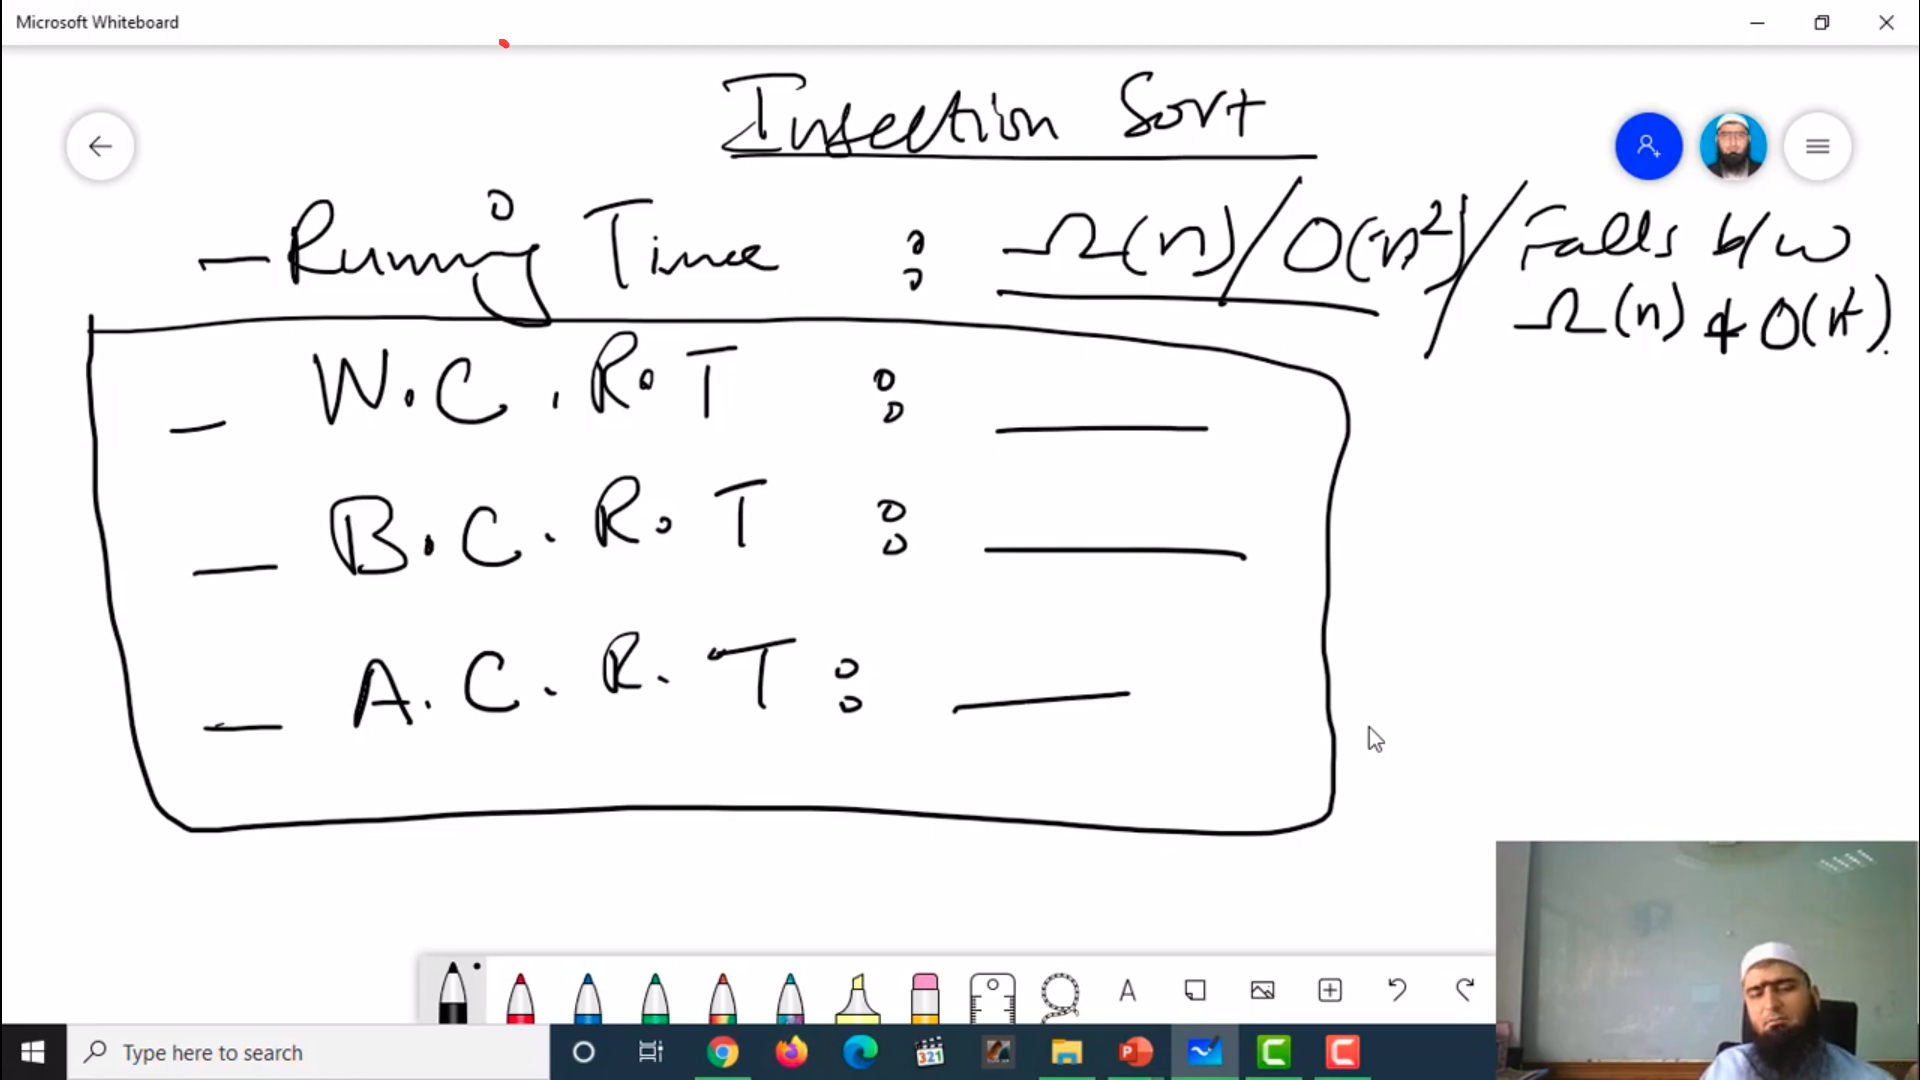 Microsoft Whiteboard
Insertion Sort
— Running Time : Ω(n) / O(n²) / Falls b/w
Ω(n) & O(n²).
— W.C.R.T : ____
— B.C.R.T : ____
— A.C.R.T : ____
A
321
Type here to search